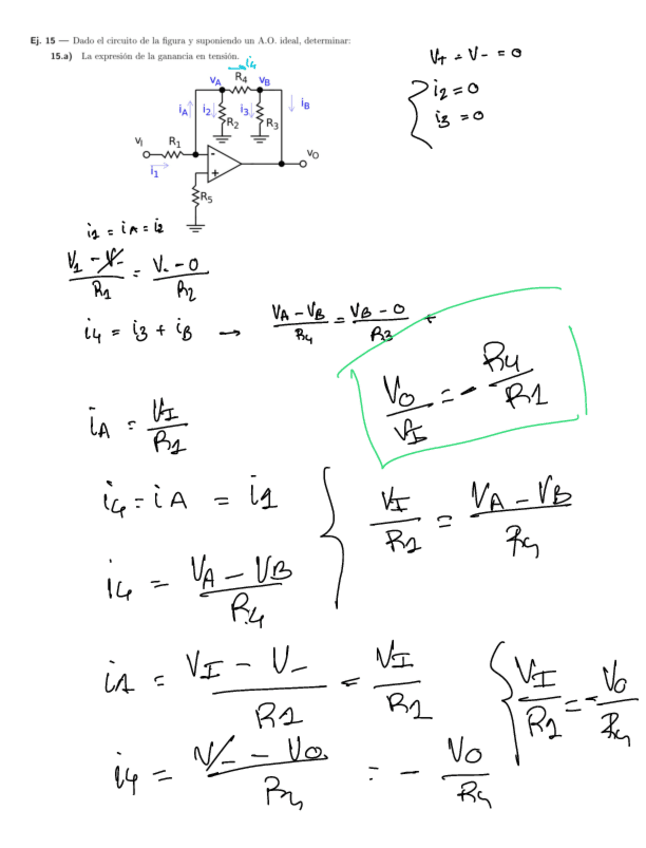 Ej. 15 — Dado el circuito de la figura y suponiendo un A.O. ideal, determinar:
15.a) La expresión de la ganancia en tensión.
V+ = V- = 0
i2 = 0
i3 = 0
i4
VA R4 VB
iA i2 i3 iB
R2 R3
VI R1
i1
-
+
VO
R5
i1 = iA = i2
V1 - V- / R1 = V- - 0 / R2
i4 = i3 + iB → VA - VB / R4 = VB - 0 / R3 +
VO / VI = - R4 / R1
iA = VI / R1
i4 = iA = i1
i4 = VA - VB / R4
VI / R1 = VA - VB / R4
i1 = VI - V- / R1 = VI / R1
i4 = V- - VO / R4 = - VO / R4
VI / R1 = - VO / R4